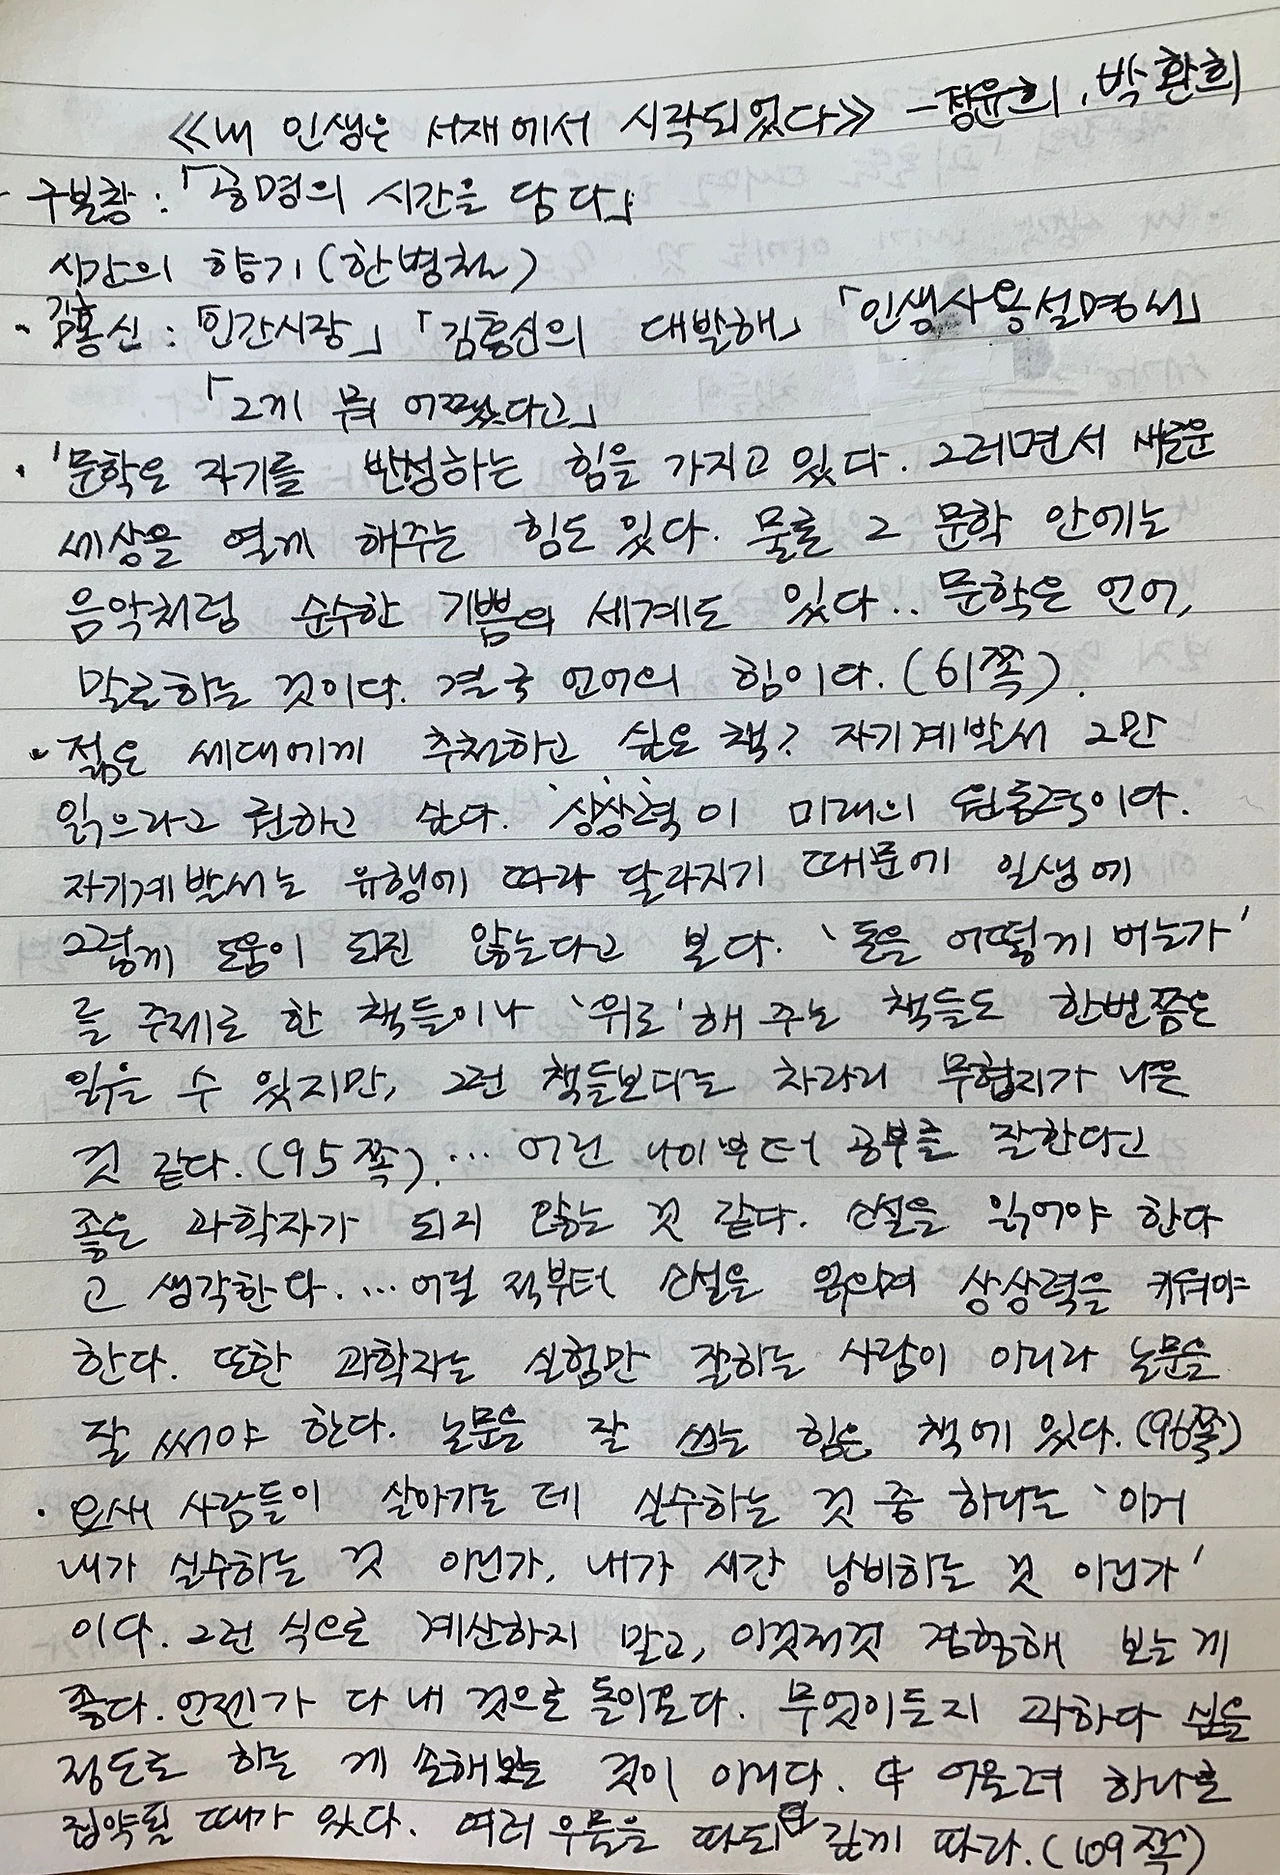 ≪내 인생은 서재에서 시작되었다≫ - 정윤희, 박환희
- 구본창 : 「공명의 시간을 담다」
시간의 향기(한병철)
· 김홍신 : 「인간시장」 「김홍신의 대발해」 「인생사용설명서」
「그게 뭐 어쨌다고」
· '문학은 자기를 반성하는 힘을 가지고 있다. 그러면서 새로운
세상을 열게 해주는 힘도 있다. 물론 그 문학 안에는
음악처럼 순수한 기쁨의 세계도 있다.. 문학은 언어,
말로하는 것이다. 결국 언어의 힘이다. (61쪽).
· 젊은 세대에게 추천하고 싶은 책? 자기계발서 그만
읽으라고 권하고 싶다. '상상력'이 미래의 원동력이다.
자기계발서는 유행에 따라 달라지기 때문에 인생에
그렇게 도움이 되진 않는다고 본다. '돈을 어떻게 버는가'
를 주제로 한 책들이나 '위로'해 주는 책들도 한번쯤은
읽을 수 있지만, 그런 책들보다는 차라리 무협지가 나은
것 같다. (95쪽). … 어린 나이부터 공부를 잘한다고
좋은 과학자가 되지 않는 것 같다. 소설을 읽어야 한다
고 생각한다. … 어릴 적부터 소설을 읽으며 상상력을 키워야
한다. 또한 과학자는 실험만 잘하는 사람이 아니라 논문을
잘 써야 한다. 논문을 잘 쓰는 힘은 책에 있다. (96쪽)
· 요새 사람들이 살아가는 데 실수하는 것 중 하나는 '이거
내가 실수하는 것 아닌가, 내가 시간 낭비하는 것 아닌가'
이다. 그런 식으로 계산하지 말고, 이것저것 경험해 보는 게
좋다. 언젠가 다 내 것으로 돌아온다. 무엇이든지 과하다 싶을
정도로 하는 게 손해보는 것이 아니다. 다 어울려 하나로
집약될 때가 있다. 여러 우물을 파되 깊게 파라. (109쪽)